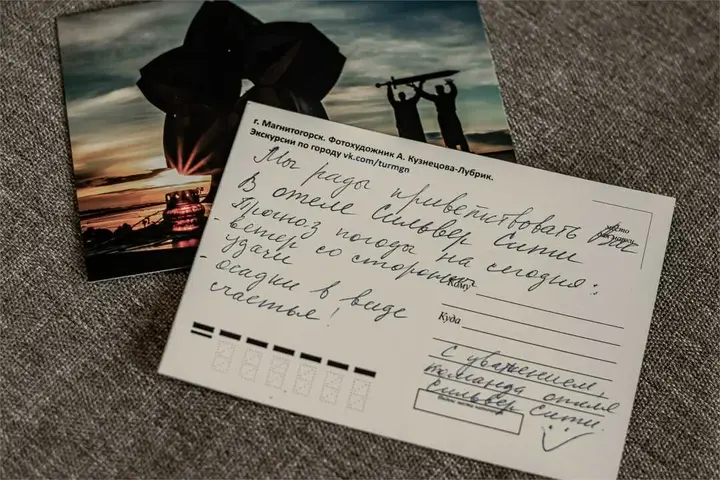 г. Магнитогорск. Фотохудожник А. Кузнецова-Лубрик.
Экскурсии по городу vk.com/turmgn
Мы рады приветствовать Вас
В отеле Сильвер Сити
Прогноз погоды на сегодня:
- ветер со стороны
удачи
- осадки в виде
счастья!
место
Кому
Куда
С уважением,
команда отеля
Сильвер Сити.